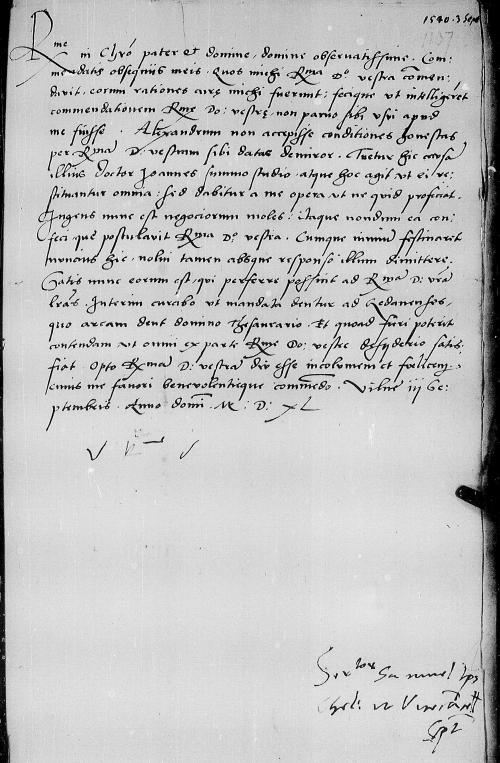 1540. 3 Sept
1137
Rme in Chro pater et domine, domine observatissime. Com:
mendatis obsequiis meis. Quos michi Rma Do. vestra comen:
davit, eorum rationes care michi fuerunt: fecique ut intelligeret
commendationem Rme Do: vestre, non parvo sibi usui apud
me fuisse. Alexandrum non accepisse conditiones honestas
per Rmam D. vestram sibi datas demiror. Tuetur hic causam
illius doctor Joannes summo studio. atque hoc agit ut ei re:
stituantur omnia: sed dabitur a me opera ut ne quid proficiat.
Ingens nunc est negociorum moles: itaque nondum ea con:
feci que postulavit Rma Do. vestra. Cumque nimium festinaret
iuvenis hic, nolui tamen absque responso illum dimittere.
Satis nunc eorum est, qui perferre possint ad Rmam D: vram
lras. Interim curabo ut mandata dentur ad Gedanenses,
quo arcam dent domino Thesaurario. Et quoad fieri poterit
contendam ut omni ex parte Rme Do: vestre desyderio satis
fiat. Opto Rmam D: vestram diu esse incolumem et foelicem,
cuius me favori benevolentieque commendo. Vilne iii Se:
ptembris. Anno domi. M: D: XL
Servitor Samuel Eps